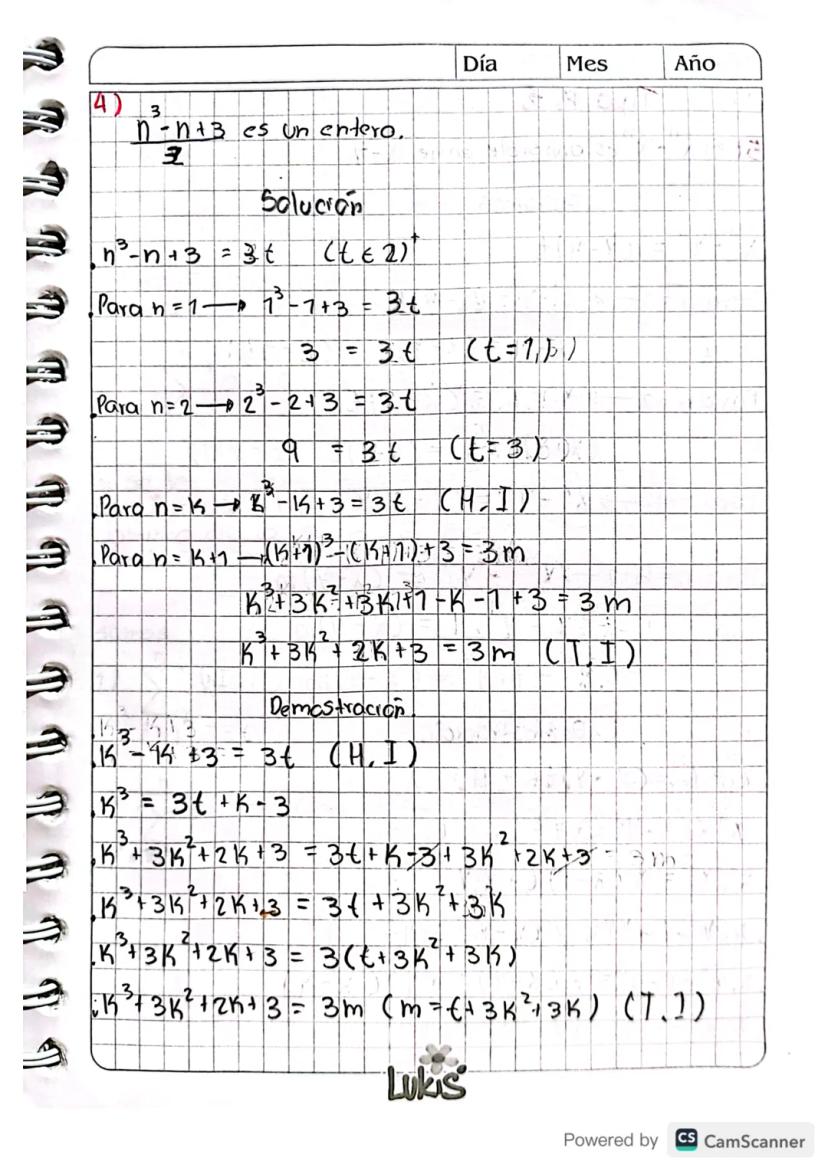 Día Mes Año
4)
n³-n+3 es un entero.
3
Solución
n³-n+3 = 3t (t ∈ Z)⁺
Para n=1 → 1³-1+3 = 3t
3 = 3t (t=1)
Para n=2 → 2³-2+3 = 3t
9 = 3t (t=3)
Para n=K → K³-K+3=3t (H.I)
Para n=K+1 → (K+1)³-(K+1)+3=3m
K³+3K²+3K+1-K-1+3=3m
K³+3K²+2K+3=3m (T.I)
Demostración.
K³-K+3 = 3t (H.I)
K³ = 3t+K-3
K³+3K²+2K+3 = 3t+K-3+3K²+2K+3
K³+3K²+2K+3 = 3t+3K²+3K
K³+3K²+2K+3 = 3(t+3K²+3K)
∴K³+3K²+2K+3 = 3m (m=t+3K²+3K) (T.I)
Lukis
Powered by CS CamScanner